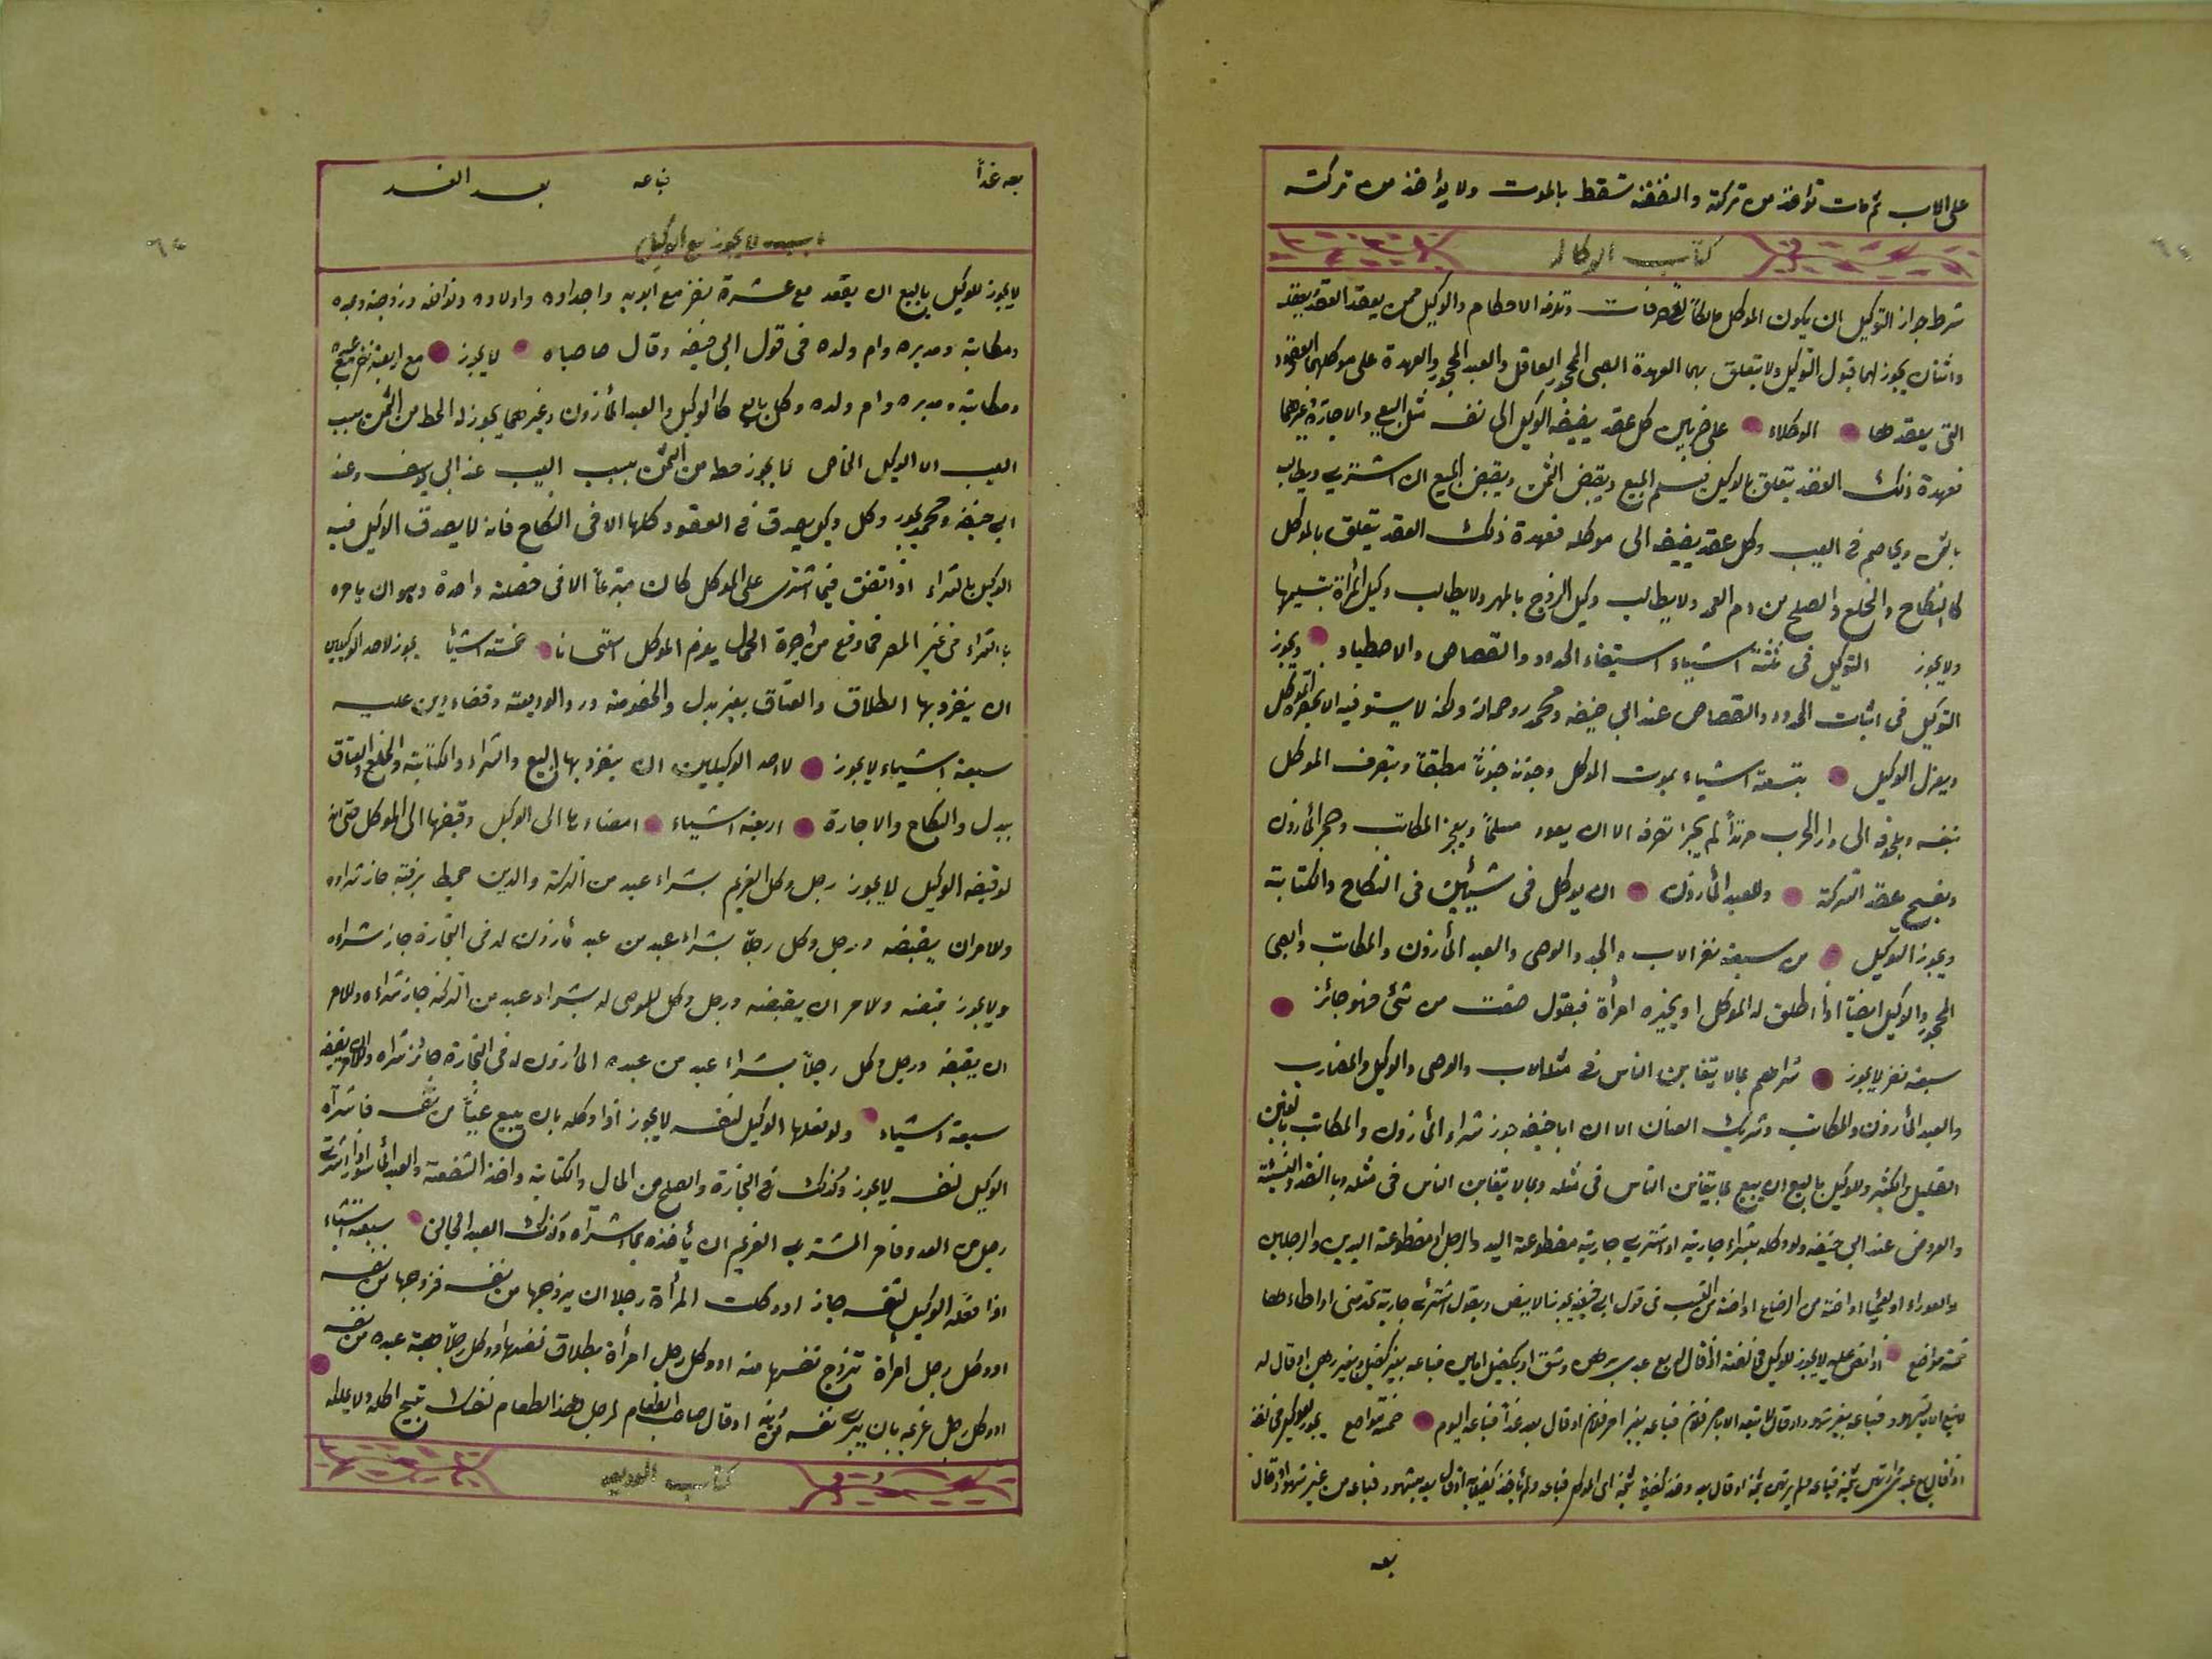 على الاب ثم مات تؤاخذ من تركته والنفقة تسقط بالموت ولا يؤاخذ من تركته
كتاب الوكالة
شرط جواز التوكيل ان يكون الموكل مالكا للتصرفات وتلزمه الاحكام والوكيل ممن يعقد العقد بعقد
واثنان يجوز لهما قبول التوكيل ولا يتعلق بهما العهدة الصبى المحجور العاقل والعبد المحجور والعهدة على موكلهما العقود
التى يعقدها الوكلاء على ضربين كل عقد يضيفه الوكيل الى نفسه مثل البيع والاجارة وغيرهما
فعهدة ذلك العقد يتعلق بالوكيل فيسلم المبيع ويقبض الثمن ويقبض المبيع ان اشترى ويطالب
بالثمن ويخاصم فى العيب وكل عقد يضيفه الى موكله فعهدة ذلك العقد يتعلق بالموكل
كالنكاح والخلع والصلح من دم العمد ولا يطالب وكيل الزوج بالمهر ولا يطالب وكيل المرأة بتسليمها
ولا يجوز التوكيل فى ثلثة اشياء استيفاء الحدود والقصاص والاصطياد ويجوز
التوكيل فى اثبات الحدود والقصاص عند ابى حنيفه ومحمد رحمه الله ولكنه لا يستوفيه الا بحضرة الموكل
ويعزل الوكيل بتسعة اشياء بموت الموكل وجنونه جنونا مطبقا وبتصرف الموكل
بنفسه وبلحوقه الى دار الحرب مرتدا لم يجز تصرفه الا ان يعود مسلما وبعجز المكاتب وحجر المأذون
وبفسخ عقد الشركة وللعبد المأذون ان يوكل فى شيئين فى النكاح والكتابة
ويجوز التوكيل من سبعة نفر الاب والجد والوصى والعبد المأذون والمكاتب والصبى
المحجور والوكيل ايضا اذا اطلق له الموكل او يخيره امرأة فيقول صنعت من شئ فهو جائز
سبعة نفر لا يجوز شراهم بما لا يتغابن الناس فى مثله الاب والوصى والوكيل والمضارب
والعبد المأذون والمكاتب وشريك العنان الا ان ابا حنيفه جوز شراء المأذون والمكاتب بالغبن
القليل والكثير وللوكيل بالبيع ان يبيع بما يتغابن الناس فى مثله وبما لا يتغابن الناس فى مثله وبالنقد والنسيئة
والعروض عند ابى حنيفه ولو وكله بشراء جارية او اشترى جارية مقطوعة اليد والرجل او مقطوعة اليدين والرجلين
والعوراء او العميا او اخته من الرضاع او اخته من النسب فى قول ابى حنيفه يجوز الا بيض ويقول اشترى جارية تخدمنى او اطاءها
خمسة مواضع اذا نص عليه لا يجوز للوكيل
بعه
بعه غدا فباعه بعد الغد
باب لا يجوز بيع الوكيل
لا يجوز للوكيل بالبيع ان يعقد مع عشرة نفر مع ابويه واجداده واولاده ونوافله وزوجته وعبده
ومكاتبه ومدبره وام ولده فى قول ابى حنيفه وقال صاحباه لا يجوز مع اربعة نفر مع عبده
ومكاتبه ومدبره وام ولده وكل بايع كالوكيل والعبد المأذون وغيرهما يجوز له الحط من الثمن بسبب
العيب الا الوكيل الخاص لا يجوز حطه من الثمن بسبب العيب عند ابى يوسف وعند
ابى حنيفه ومحمد يجوز وكل وكيل يصدق فى العقود كلها الا فى النكاح فانه لا يصدق الوكيل فيه
الوكيل بالشراء اذا انفق فيما اشترى على الموكل كان متبرعا الا فى خصلة واحدة وهو ان يامره
بالشراء فى غير المصر فما دفع من اجرة الحمل يغرم الموكل استحسانا خمسة اشيأ يجوز لاحد الوكيلين
ان ينفرد بها الطلاق والعتاق بغير بدل والخصومة ورد الوديعة وقضاء دين عليه
سبعة اشياء لا يجوز لاحد الوكيلين ان ينفرد بها البيع والشراء والكتابة والخلع والعتاق
ببدل والنكاح والاجارة اربعة اشياء امضاءها الى الوكيل وقبضها الى الموكل حتى ان
لو قبضه الوكيل لا يجوز رجل وكل الغريم بشراء عبد من التركة والدين محيط برقبته جاز شراءه
وللامر ان يقبضه ورجل وكل رجلا بشراء عبد من عبد مأذون له فى التجارة جاز شراءه
ولا يجوز قبضه وللامر ان يقبضه ورجل وكل الموصى له بشراء عبد من التركة جاز شراءه وللامر
ان يقبضه ورجل وكل رجلا بشراء عبد من عبده المأذون له فى التجارة جائز شراه وللامر ان يقبضه
سبعة اشياء ولو فعلها الوكيل لنفسه لا يجوز اذا وكله بان يبيع عينا من نفسه فاشتراه
الوكيل لنفسه لا يجوز وكذلك فى التجارة والصلح من المال والكتابة واخذ الشفعة والعبد المأسور اذا اشتراه
رجل من العدو فامر المشترى الغريم ان يأخذه بما اشتراه وكذلك العبد الجانى سبعة اشياء
اذا فعله الوكيل لنفسه جاز او وكلت المرأة رجلا ان يزوجها من نفسه فزوجها من نفسه
او وكل رجل امرأة تتزوج نفسها منه او وكل رجل امرأة بطلاق نفسها او وكل رجلا بهبة عبده من نفسه
او وكل رجل غريمه بان يبرئ نفسه من دينه او قال صاحب الطعام لرجل هذا الطعام
كتاب الوديعه